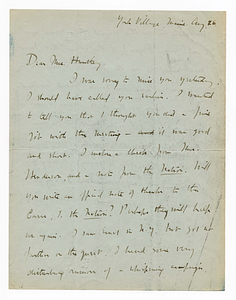 York Village, Maine, Aug 26
Dear Mrs. Huntley,
I was sorry to miss you yesterday.
I should have called you earlier. I wanted
to tell you that I thought you did a fine
job with the meeting – and it was good
and short. I enclose a check from Mrs.
Henderson and a note from the Nation. Will
you write an official note of thanks to the
Corro, to the Nation? Perhaps they will help
us again. I can meet in N.Y. but not at
I heard some very
disturbing rumors of a whispering campaign